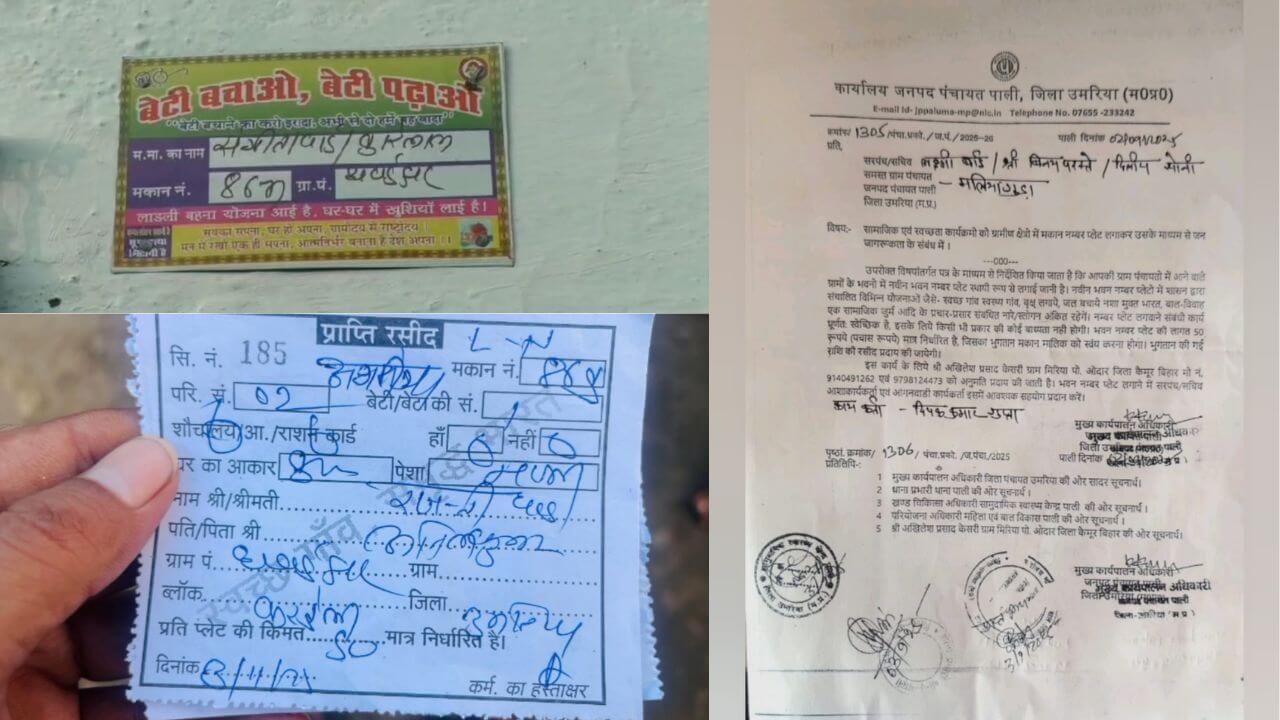 बेटी बचाओ, बेटी पढ़ाओ
"बेटी बचाने का करो इरादा, अभी से दो हमें यह वादा"
म.मा. का नाम
मकान नं. ग्रा.पं.
लाडली बहना योजना आई है, घर-घर में खुशियाँ लाई है।
सबका सपना, घर हो अपना, ग्रामोदय में राष्ट्रोदय।
मन में रखों एक ही सपना, आत्मनिर्भर बनाता है देश अपना ।।
प्राप्ति रसीद
सि. नं. 185
मकान नं.
परि. सं. 02 बेटी/बेटा की सं.
शौचालय/आ./राशन कार्ड हाँ नहीं
घर का आकार पेशा
नाम श्री/श्रीमती
पति/पिता श्री
ग्राम पं. ग्राम
ब्लॉक जिला उमरिया
प्रति प्लेट की किमत 50 मात्र निर्धारित है।
दिनांक
कर्म. का हस्ताक्षर
स्वच्छ गाँव स्वच्छ भारत
कार्यालय जनपद पंचायत पाली, जिला उमरिया (म0प्र0)
E-mail Id- jppaluma-mp@nic.in Telephone No. 07655 -233242
क्रमांक/ 1305 /पंचा.प्रको. /ज.पं. / 2025-26 पाली दिनांक 02/09/2025
प्रति,
सरपंच/सचिव
समस्त ग्राम पंचायत
जनपद पंचायत पाली
जिला उमरिया (म.प्र.)
विषय:- सामाजिक एवं स्वच्छता कार्यक्रमो को ग्रामीण क्षेत्रो में मकान नम्बर प्लेट लगाकर उसके माध्यम से जन
जागरूकता के संबंध में ।
---000---
उपरोक्त विषयांतर्गत पत्र के माध्यम से निर्देशित किया जाता है कि आपकी ग्राम पंचायतो में आने वाले
ग्रामों के भवनो में नवीन भवन नम्बर प्लेट स्थायी रूप से लगाई जानी है। नवीन भवन नम्बर प्लेटो में शासन द्वारा
संचालित विभिन्न योजनाओं जैसे- स्वच्छ गांव स्वस्थ्य गांव, वृक्ष लगाये, जल बचाये नशा मुक्त भारत, बाल-विवाह
एक सामाजिक जुर्म आदि के प्रचार-प्रसार संबधित नारे/स्लोगन अंकित रहेगें। नम्बर प्लेट लगवाने संबंधी कार्य
पूर्णतः स्वेच्छिक है, इसके लिये किसी भी प्रकार की कोई बाध्यता नही होगी। भवन नम्बर प्लेट की लागत 50
रूपये (पचास रूपये) मात्र निर्धारित है, जिसका भुगतान मकान मालिक को स्वंय करना होगा। भुगतान की गई
राशि की रसीद प्रदाय की जायेगी।
इस कार्य के लिये श्री अखिलेश प्रसाद केशरी ग्राम मिरिया पो. ओदार जिला कैमूर बिहार मो नं.
9140491262 एवं 9798124473 को अनुमति प्रदाय की जाती है। भवन नम्बर प्लेट लगाने में सरपंच/सचिव
आशाकार्यकर्ता एवं आंगनवाडी कार्यकर्ता इसमें आवश्यक सहयोग प्रदान करें।
मुख्य कार्यपालन अधिकारी
पृष्ठां. क्रमांक/ 1306 /पंचा.प्रको. /ज.पंचा./2025 पाली दिनांक
प्रतिलिपि:-
1 मुख्य कार्यपालन अधिकारी जिला पंचायत उमरिया की ओर सादर सूचनार्थ।
2 थाना प्रभारी थाना पाली की ओर सूचनार्थ ।
3 खण्ड चिकित्सा अधिकारी सामुदायिक स्वास्थ्य केन्द्र पाली की ओर सूचनार्थ ।
4 परियोजना अधिकारी महिला एवं बाल विकास पाली की ओर सूचनार्थ ।
5 श्री अखिलेश प्रसाद केसरी ग्राम मिरिया पो. ओदार जिला कैमूर बिहार की ओर सूचनार्थ।
मुख्य कार्यपालन अधिकारी
जनपद पंचायत पाली